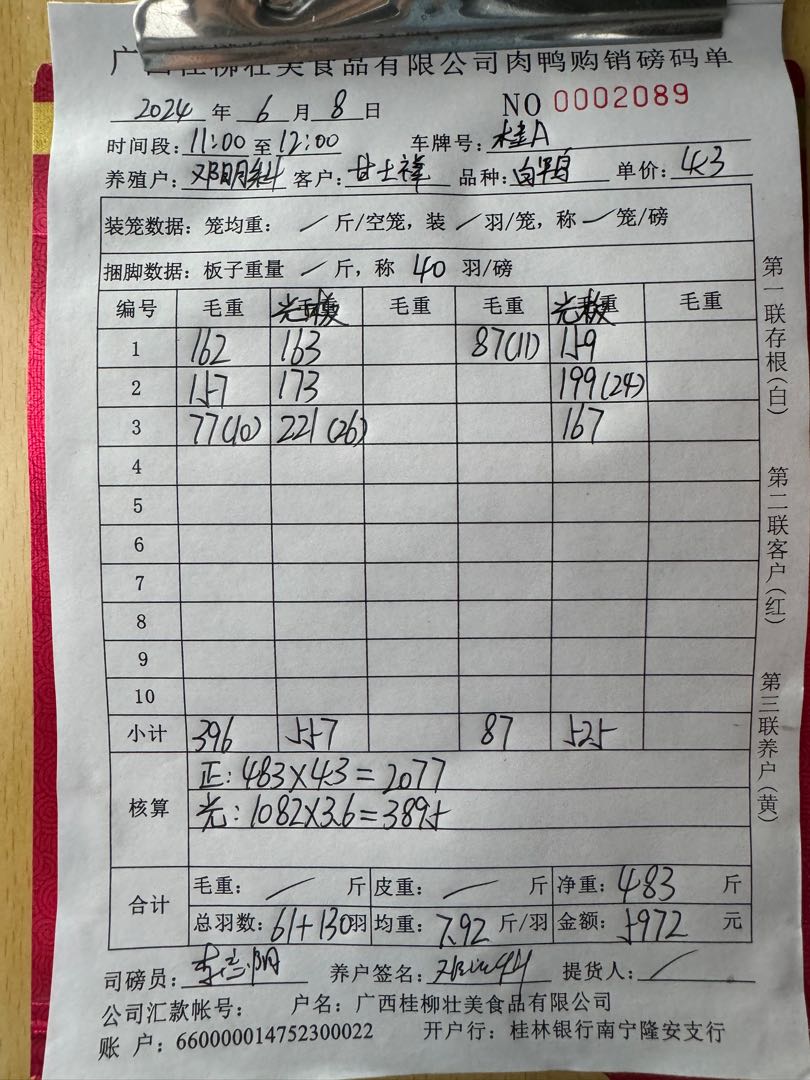 广西桂柳壮美食品有限公司肉鸭购销磅码单
2024 年 6 月 8 日 NO 0002089
时间段: 11:00 至 12:00 车牌号: 桂A
养殖户: 邓明科 客户: 甘士禄 品种: 白鸭 单价: 4.3
装笼数据: 笼均重: / 斤/空笼, 装 / 羽/笼, 称 / 笼/磅
捆脚数据: 板子重量 / 斤, 称 40 羽/磅
编号 毛重 光 毛重 毛重 光 毛重
1 162 163 87(11) 159
2 157 173 199(24)
3 77(10) 221(26) 167
4
5
6
7
8
9
10
小计 396 557 87 525
核算 正: 483×4.3=2077
光: 1082×3.6=3895
合计 毛重: / 斤 皮重: / 斤 净重: 483 斤
总羽数: 61+130羽 均重: 7.92 斤/羽 金额: 5972 元
司磅员: 养户签名: 提货人: /
公司汇款帐号: 户名: 广西桂柳壮美食品有限公司
账 户: 660000014752300022 开户行: 桂林银行南宁隆安支行
第一联存根(白)
第二联客户(红)
第三联养户(黄)